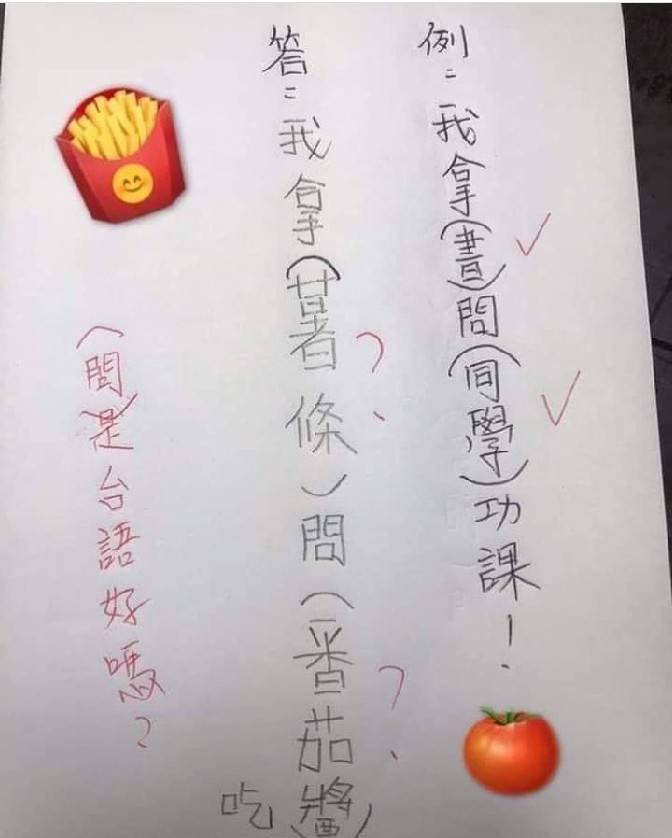 例：我拿(書)問(同學)功課！
答：我拿(薯條)問(番茄醬)
吃
(問)是台語好嗎？